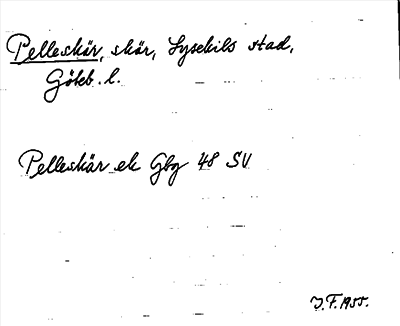 Pelleskär, skär, Lysekils stad,
Göteb. l.
Pelleskär ek Gbg 48 SV
J.F. 1955.